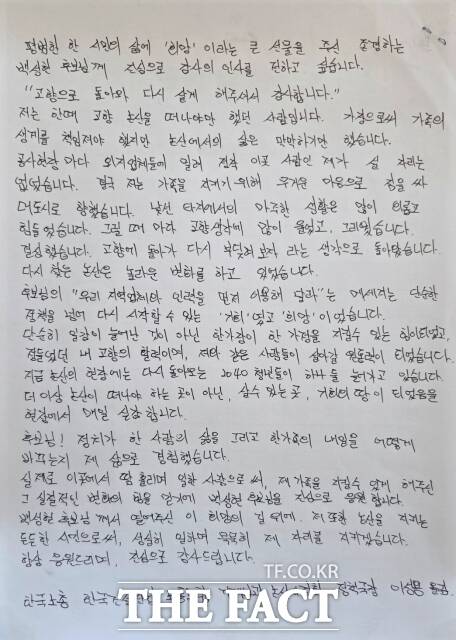 평범한 한 시민의 삶에 '희망' 이라는 큰 선물을 주신 존경하는
백성현 후보님께 진심으로 감사의 인사를 전하고 싶습니다.
"고향으로 돌아와 다시 살게 해주셔서 감사합니다."
저는 한때 고향 논산을 떠나야만 했던 사람입니다. 가장으로써 가족의
생계를 책임져야 했지만 논산에서의 삶은 막막하기만 했습니다.
공사현장마다 외지업체들에 밀려 정작 이곳 사람인 제가 설 자리는
없었습니다. 결국 저는 가족을 지키기 위해 무거운 마음으로 짐을 싸
대도시로 향했습니다. 낯선 타지에서의 마주한 생활은 많이 외롭고
힘들었습니다. 그럴 때 마다 고향생각에 많이 울었고, 그리웠습니다.
결심했습니다. 고향에 돌아가 다시 부딪혀보자 라는 생각으로 돌아왔습니다.
다시 찾은 논산은 놀라운 변화를 하고 있었습니다.
후보님의 "우리 지역업체와 인력을 먼저 이용해 달라"는 메세지는 단순한
정책을 넘어 다시 시작할 수 있는 '기회'였고 '희망'이었습니다.
단순히 일감이 늘어난 것이 아닌 한가장이 한 가정을 지킬수 있는 힘이되었고,
잠들었던 내 고향의 활력이며, 저와 같은 사람들이 살아갈 원동력이 되었습니다.
지금 논산의 현장에는 다시 돌아오는 2040 청년들이 하나 둘 늘어가고 있습니다.
더 이상 논산이 떠나야 하는 곳이 아닌, 살수 있는 곳, 기회의 땅이 되었음을
현장에서 매일 실감합니다.
후보님! 정치가 한 사람의 삶을 그리고 한가족의 내일을 어떻게
바꾸는지 제 삶으로 경험했습니다.
실제로 이곳에서 땀 흘리며 일한 사람으로써, 제 가족을 지킬수 있게 해주신
그 실질적인 변화의 힘을 알기에 백성현 후보님을 진심으로 응원합니다.
백성현 후보님 께서 열어주신 이 희망의 길 위에. 저 또한 논산을 지키는
든든한 시민으로써, 성실히 일하며 묵묵히 제 자리를 지키겠습니다.
항상 응원드리며, 진심으로 감사드립니다.
한국노총 정책국장 이성룡 올림.
TF.CO.KR
THE FACT